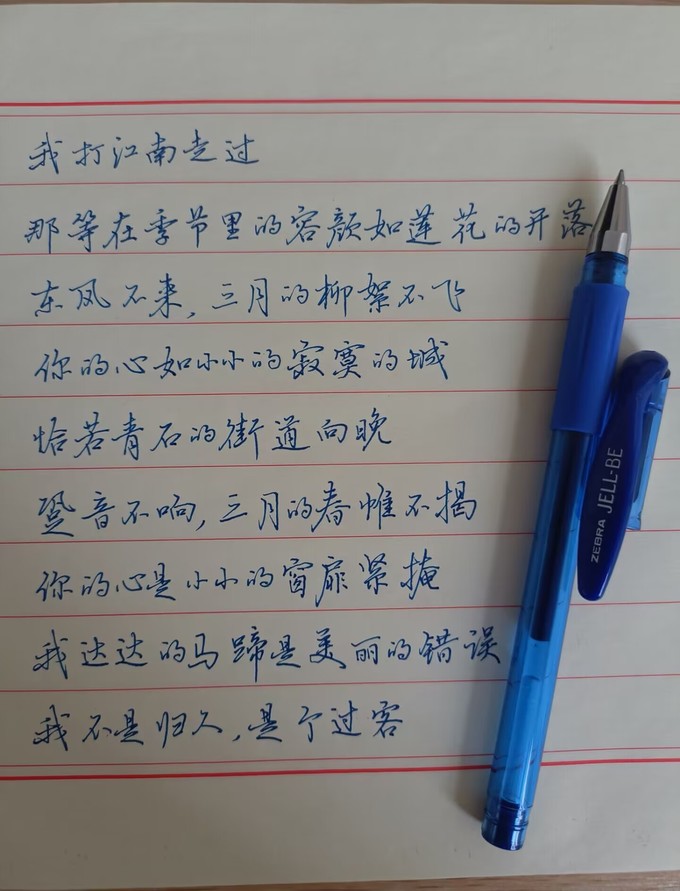 我打江南走过
那等在季节里的容颜如莲花的开落
东风不来,三月的柳絮不飞
你的心如小小的寂寞的城
恰若青石的街道向晚
跫音不响,三月的春帷不揭
你的心是小小的窗扉紧掩
我达达的马蹄是美丽的错误
我不是归人,是个过客
ZEBRA JELL-BE